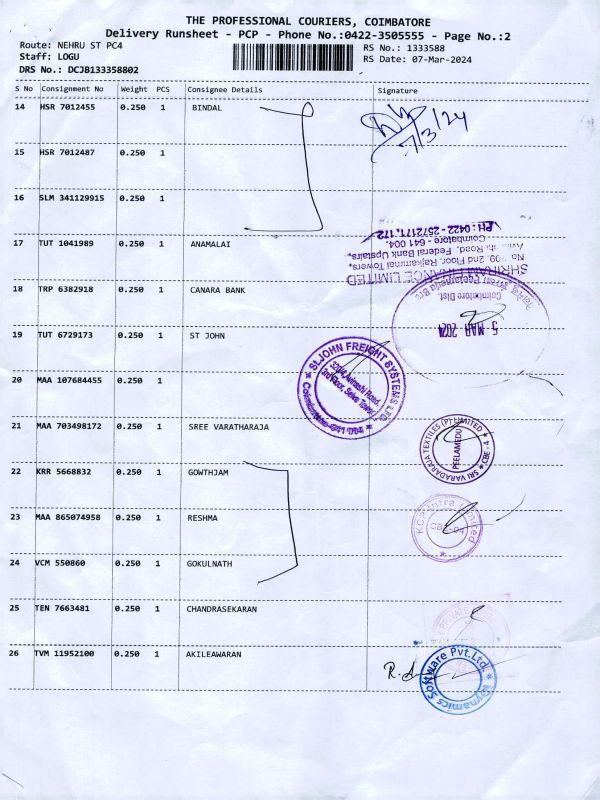 THE PROFESSIONAL COURIERS, COIMBATORE
Delivery Runsheet - PCP - Phone No.:0422-3505555 - Page No.:2
Route: NEHRU ST PC4
RS No.: 1333588
Staff: LOGU
RS Date: 07-Mar-2024
DRS No.: DCJB133358802
S No Consignment No Weight PCS Consignee Details Signature
14 HSR 7012455 0.250 1 BINDAL
7/3/24
15 HSR 7012487 0.250 1
16 SLM 341129915 0.250 1
17 TUT 1041989 0.250 1 ANAMALAI
PH : 0422 - 2572171, 172
Coimbatore - 641 004.
Road, Federal Bank Upstairs,
2nd Floor, Rajkammal Towers,
SHRIRAM FINANCE LIMITED
18 TRP 6382918 0.250 1 CANARA BANK
Coimbatore Dist.
5 MAR 2024
19 TUT 6729173 0.250 1 ST JOHN
ST.JOHN FREIGHT SYSTEMS LTD
3rd Floor, Selva Towers,
Coimbatore-641 004
20 MAA 107684455 0.250 1
21 MAA 703498172 0.250 1 SREE VARATHARAJA
SRI VARADARAJA TEXTILES (P) LIMITED
PEELAMEDU
CBE - 4
22 KRR 5668832 0.250 1 GOWTHJAM
23 MAA 865074958 0.250 1 RESHMA
KCP Infra Limited
24 VCM 550860 0.250 1 GOKULNATH
25 TEN 7663481 0.250 1 CHANDRASEKARAN
26 TVM 11952100 0.250 1 AKILEAWARAN
Software Pvt.Ltd.